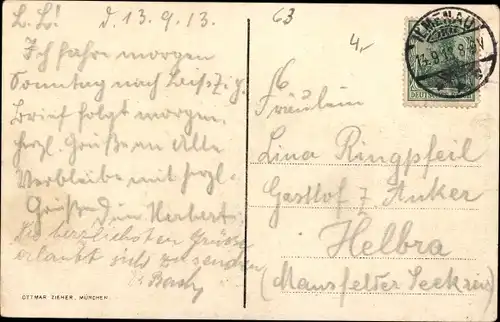 L. L! d. 13.9.13.
Ich fahre morgen
Sonntag nach
Brief folgt morgen.
herzl. Grüße an Alle
Verbleibe mit herzl.
Grüßen Dein Herbert.
Die herzlichsten Grüsse
erlaubt sich zu senden
63
4,-
ILMENAU
13.9.13
Fräulein
Lina Ringpfeil
Gasthof z Anker
Helbra
(Mansfelder Seekreis)
OTTMAR ZIEHER, MÜNCHEN.